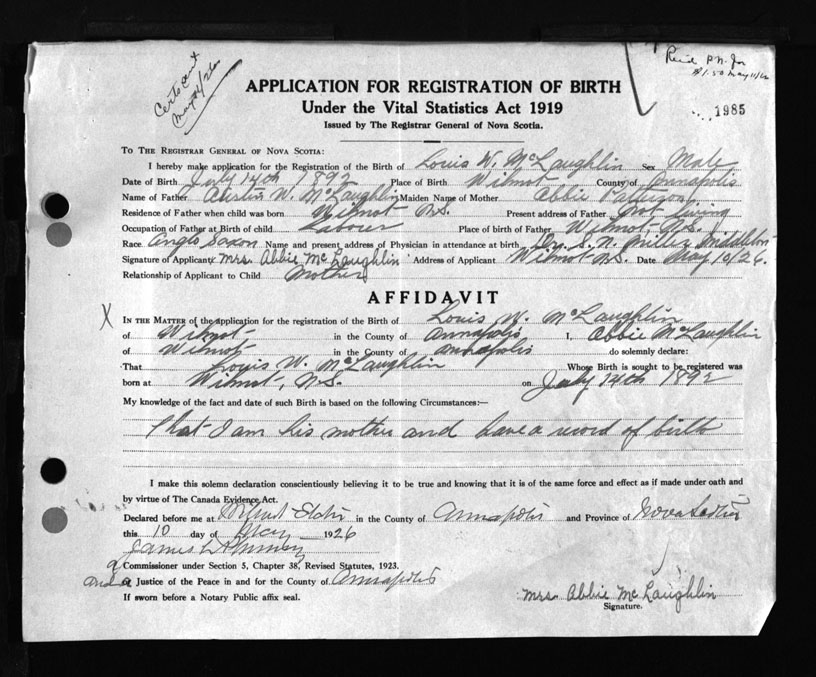 Cert sent
May 12/26
Reid P.N. Jan
$1.50 May 11/26
APPLICATION FOR REGISTRATION OF BIRTH
Under the Vital Statistics Act 1919
Issued by The Registrar General of Nova Scotia.
1985
TO THE REGISTRAR GENERAL OF NOVA SCOTIA:
I hereby make application for the Registration of the Birth of Louis W. McLaughlin Sex Male
Date of Birth July 14th 1892 Place of Birth Wilmot County of Annapolis
Name of Father Austin W. McLaughlin Maiden Name of Mother Abbie Patterson
Residence of Father when child was born Wilmot N.S. Present address of Father not living
Occupation of Father at Birth of child Labour Place of birth of Father Wilmot, N.S.
Race Anglo Saxon Name and present address of Physician in attendance at birth Dr. S. N. Miller Middleton
Signature of Applicant Mrs. Abbie McLaughlin Address of Applicant Wilmot N.S. Date May 10/26.
Relationship of Applicant to Child Mother
AFFIDAVIT
X IN THE MATTER of the application for the registration of the Birth of Louis W. McLaughlin
of Wilmot in the County of Annapolis I, Abbie McLaughlin
of Wilmot in the County of Annapolis do solemnly declare:
That Louis W. McLaughlin Whose Birth is sought to be registered was
born at Wilmot, N.S. on July 14th 1892
My knowledge of the fact and date of such Birth is based on the following Circumstances:—
That I am his mother and have a record of birth
I make this solemn declaration conscientiously believing it to be true and knowing that it is of the same force and effect as if made under oath and
by virtue of The Canada Evidence Act.
Declared before me at Wilmot Station in the County of Annapolis and Province of Nova Scotia
this 10 day of May 1926
James
a Commissioner under Section 5, Chapter 38, Revised Statutes, 1923.
and a Justice of the Peace in and for the County of Annapolis
If sworn before a Notary Public affix seal.
Mrs. Abbie McLaughlin
Signature.